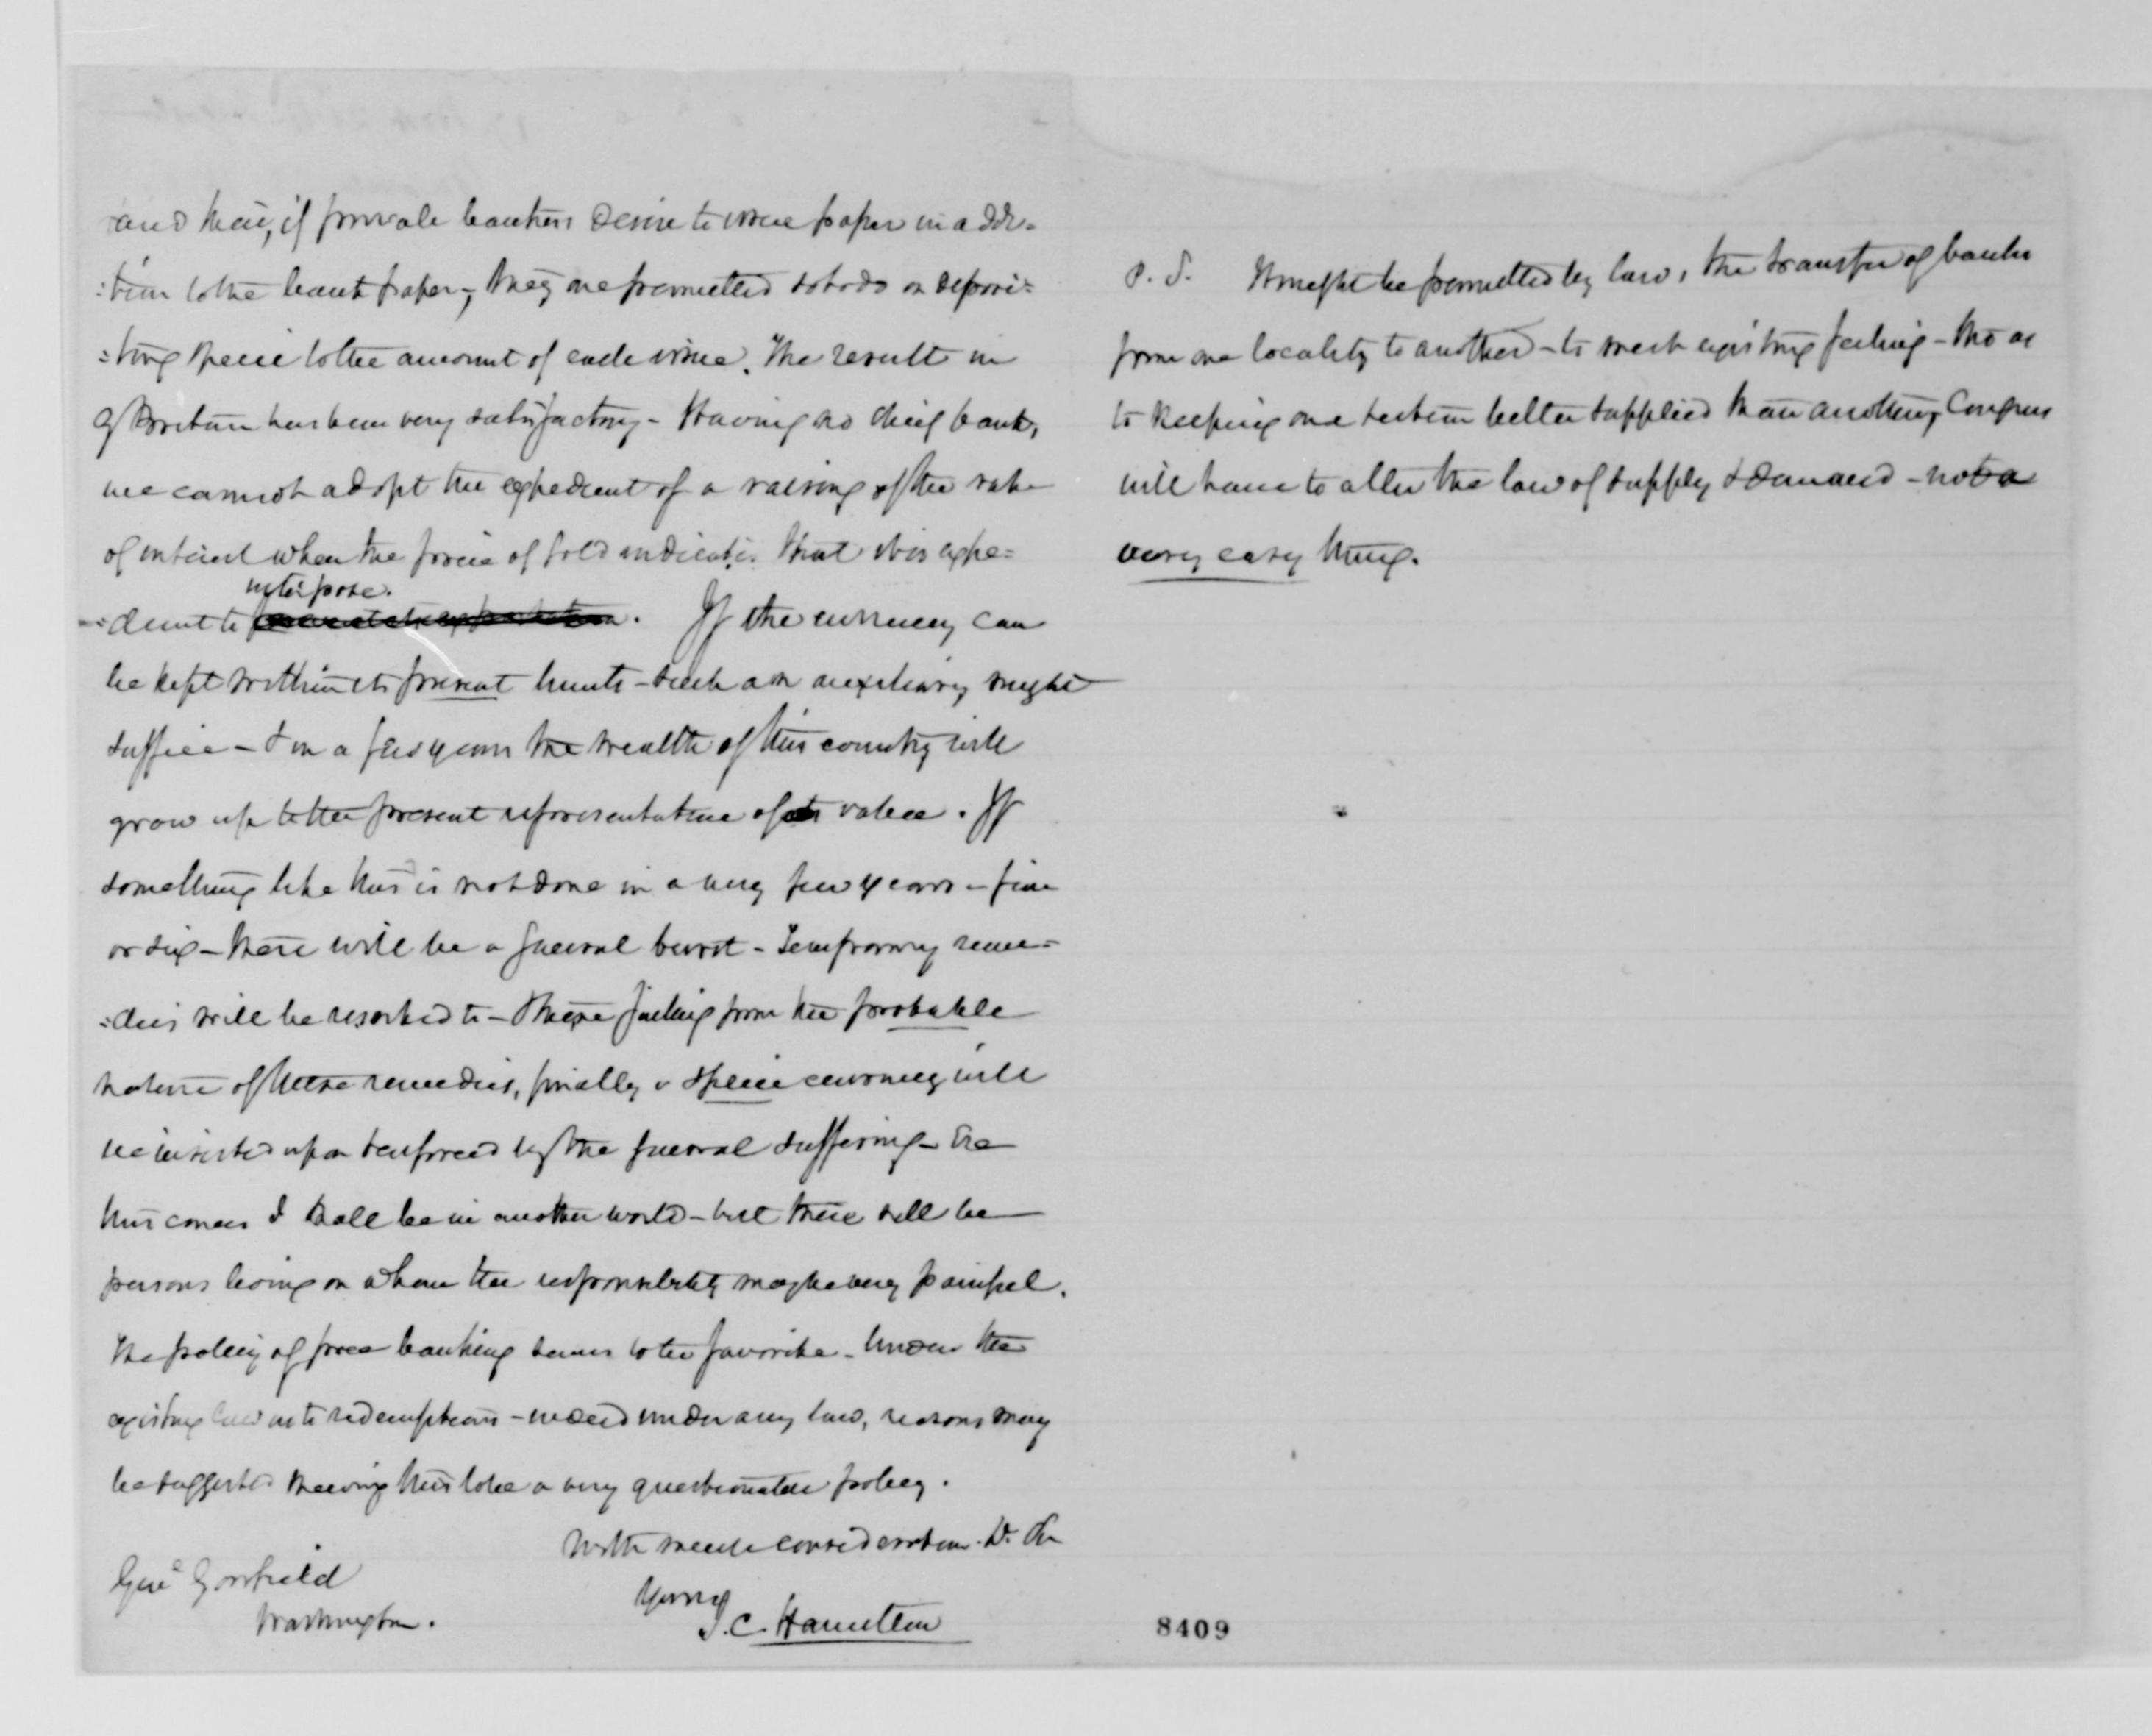 and then, if private bankers desire to issue paper in addi=
=tion to the bank paper, they are permitted so to do on deposi=
=ting specie to the amount of each issue. The result in
G Britain has been very satisfactory - Having no chief bank,
we cannot adopt the expedient of a raising of the rate
of interest when the price of gold indicates that it is expe=
interpose.
=dient to prevent its exportation. If the currency can
be kept within its present limits - such an auxiliary might
suffice - & in a few years the wealth of this country will
grow up to the present representative of its value. If
something like this is not done in a very few years - five
or six - there will be a general burst - Temporary reme=
=dies will be resorted to - These failing from the probable
nature of these remedies, finally a specie currency will
be insisted upon & enforced by the general suffering - Ere
this comes I shall be in another world - but there will be
persons living on whom the responsibility may be very painful.
The policy of free banking seems to be favorite - Under the
existing law as to redemptions - indeed under any law, reasons may
be suggested shewing this to be a very questionable policy.
With much consideration. Dr Sir
Genl Garfield
Washington.
Yours
J. C. Hamilton
P. S. It might be permitted by law, the transfer of banks
from one locality to another - to meet existing feeling - tho as
to keeping one section better supplied than another, Congress
will have to alter the law of supply & demand - not a
very easy thing.
8409